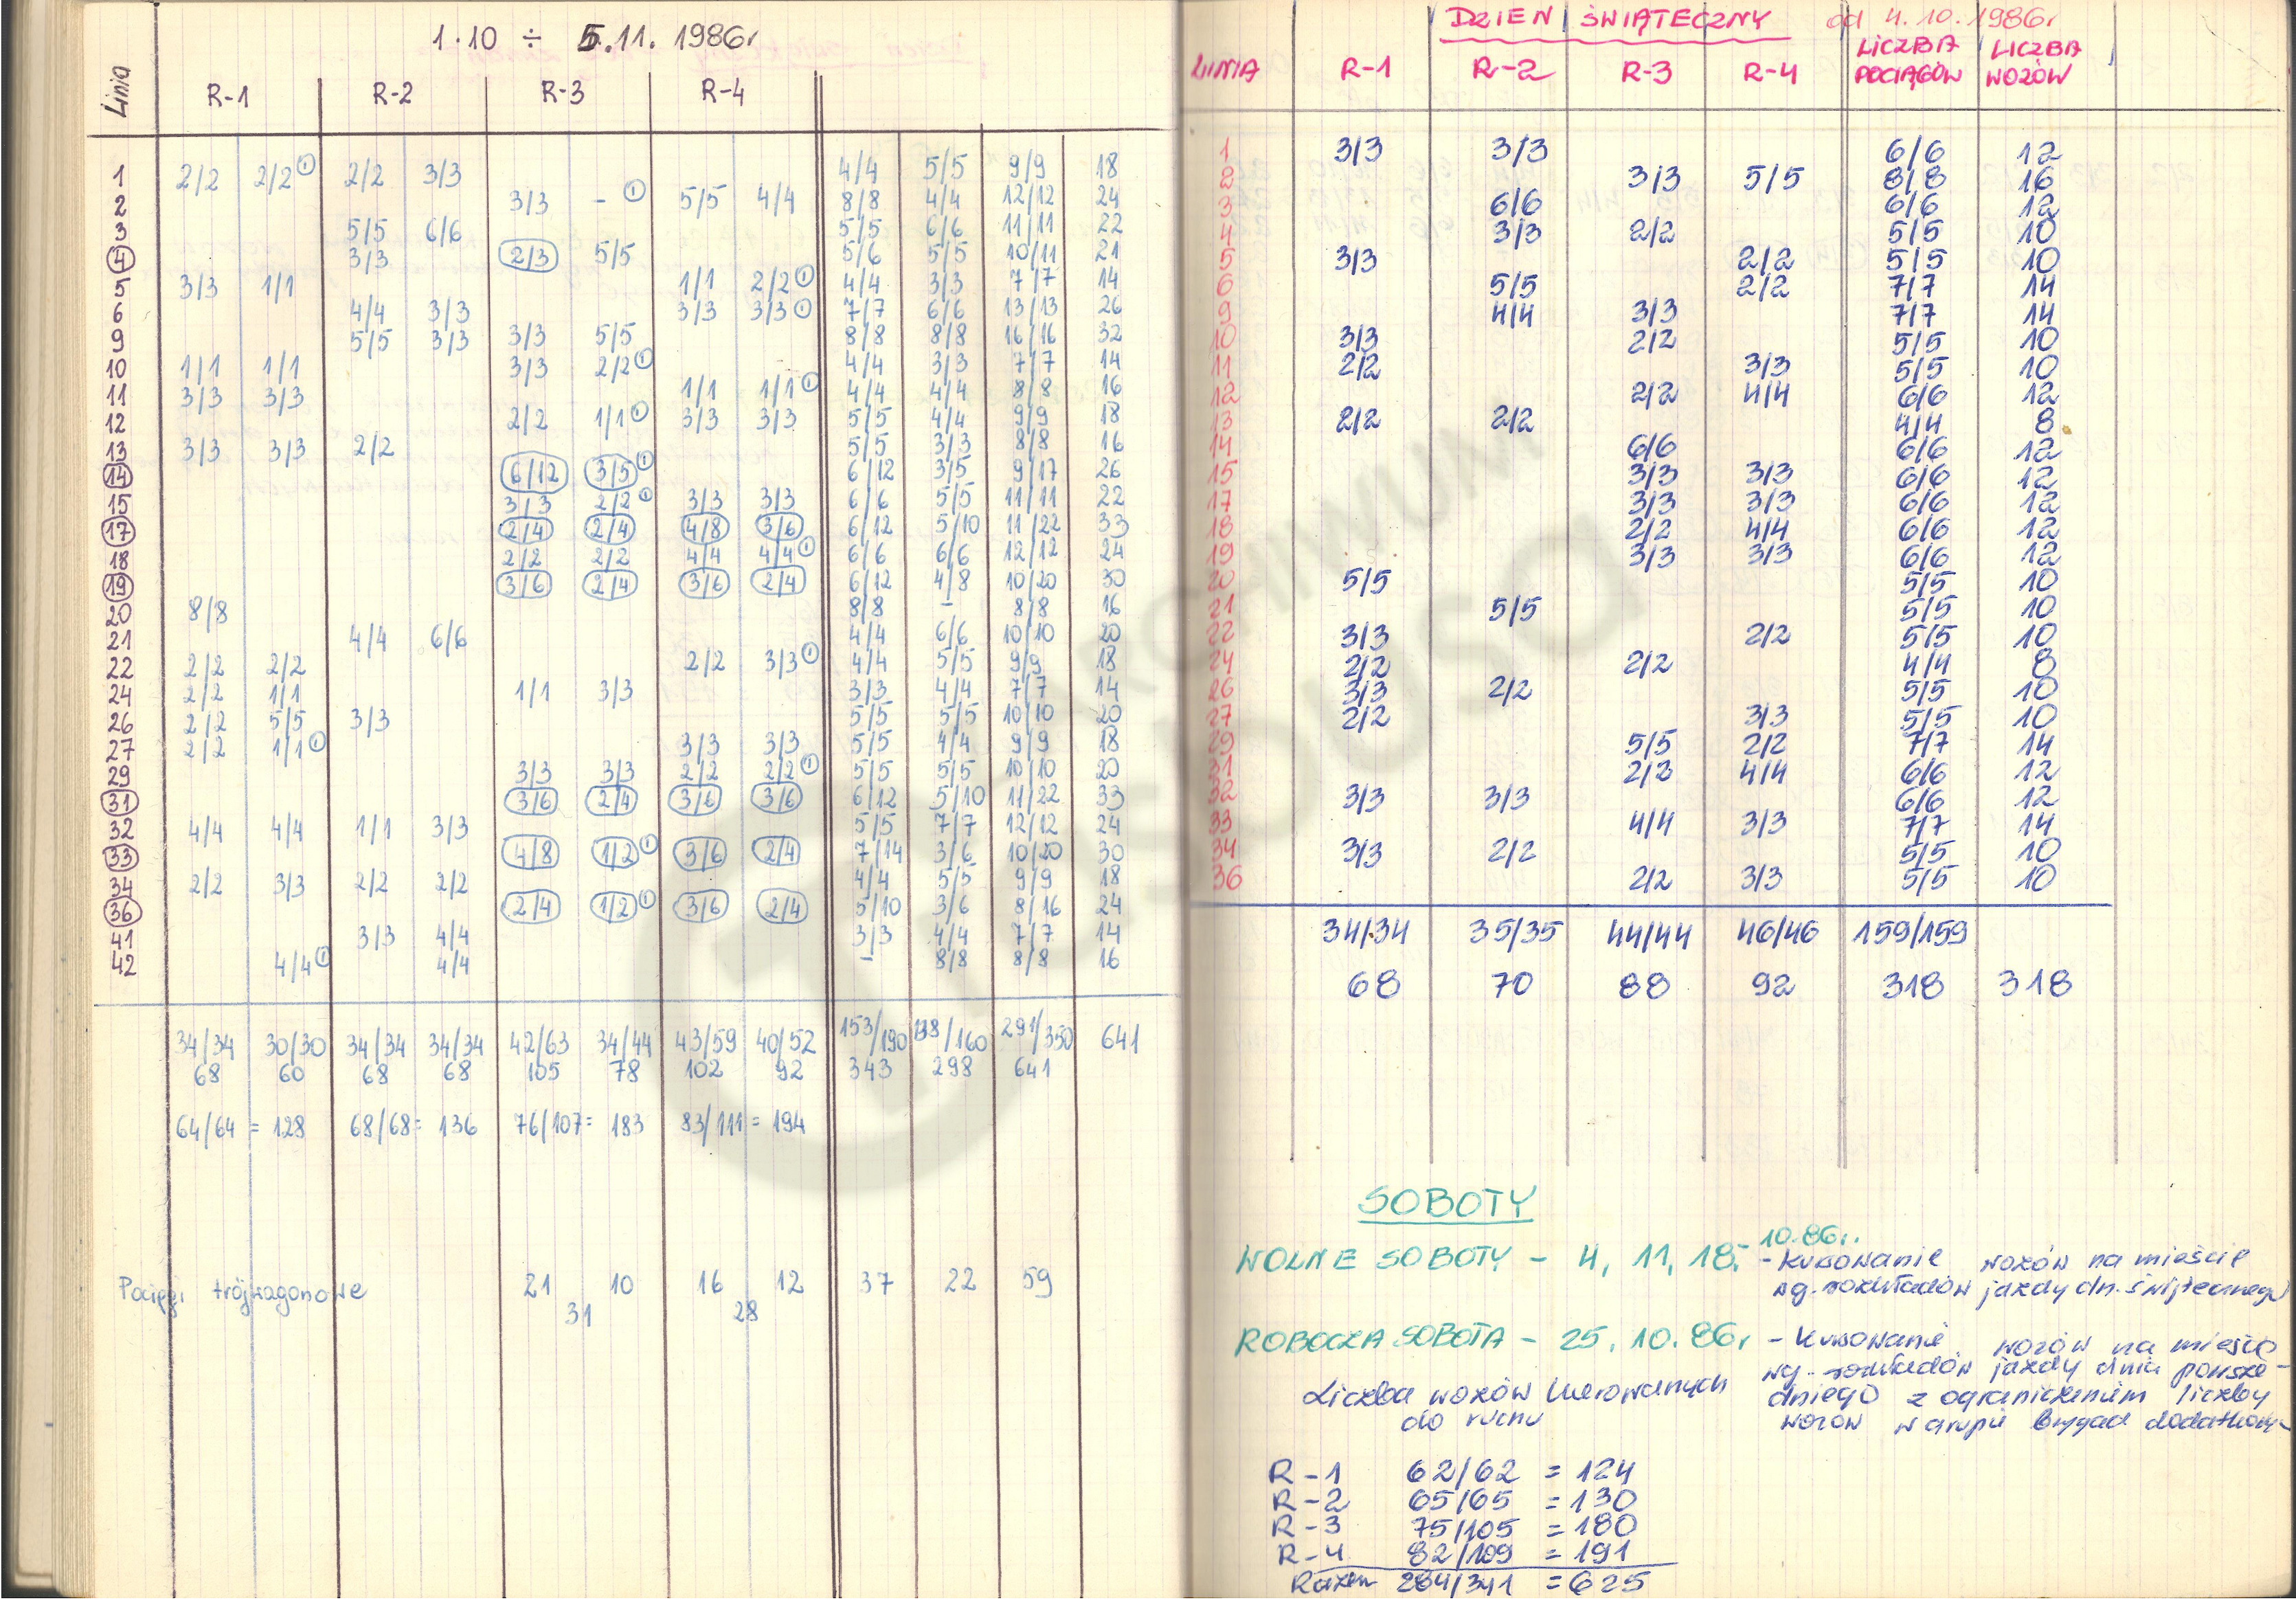 1.10 ÷ 5.11. 1986r
Linia R-1 R-2 R-3 R-4
1 2/2 2/2① 2/2 3/3 4/4 5/5 9/9 18
2 3/3 - ① 5/5 4/4 8/8 4/4 12/12 24
3 5/5 6/6 5/5 6/6 11/11 22
④ 3/3 2/3 5/5 5/6 5/5 10/11 21
5 3/3 1/1 1/1 2/2① 4/4 3/3 7/7 14
6 4/4 3/3 3/3 3/3① 7/7 6/6 13/13 26
9 5/5 3/3 3/3 5/5 8/8 8/8 16/16 32
10 1/1 1/1 3/3 2/2① 4/4 3/3 7/7 14
11 3/3 3/3 1/1 1/1① 4/4 4/4 8/8 16
12 2/2 1/1① 3/3 3/3 5/5 4/4 9/9 18
13 3/3 3/3 2/2 5/5 3/3 8/8 16
⑭ 6/12 3/5① 6/12 3/5 9/17 26
15 3/3 2/2① 3/3 3/3 6/6 5/5 11/11 22
⑰ 2/4 2/4 4/8 3/6 6/12 5/10 11/22 33
18 2/2 2/2 4/4 4/4① 6/6 6/6 12/12 24
⑲ 3/6 2/4 3/6 2/4 6/12 4/8 10/20 30
20 8/8 8/8 - 8/8 16
21 4/4 6/6 4/4 6/6 10/10 20
22 2/2 2/2 2/2 3/3① 4/4 5/5 9/9 18
24 2/2 1/1 1/1 3/3 3/3 4/4 7/7 14
26 2/2 5/5 3/3 5/5 5/5 10/10 20
27 2/2 1/1① 3/3 3/3 5/5 4/4 9/9 18
29 3/3 3/3 2/2 2/2① 5/5 5/5 10/10 20
㉛ 3/6 2/4 3/6 3/6 6/12 5/10 11/22 33
32 4/4 4/4 1/1 3/3 5/5 7/7 12/12 24
㉝ 4/8 1/2① 3/6 2/4 7/14 3/6 10/20 30
34 2/2 3/3 2/2 2/2 4/4 5/5 9/9 18
㊱ 2/4 1/2① 3/6 2/4 5/10 3/6 8/16 24
41 3/3 4/4 3/3 4/4 7/7 14
42 4/4① 4/4 - 8/8 8/8 16
34/34 30/30 34/34 34/34 42/63 34/44 43/59 40/52 153/190 138/160 291/350 641
68 60 68 68 105 78 102 92 343 298 641
64/64 = 128 68/68 = 136 76/107 = 183 83/111 = 194
Pociągi trójwagonowe 21 10 16 12 37 22 59
31 28
DZIEŃ ŚWIĄTECZNY od 4.10.1986r
LINIA R-1 R-2 R-3 R-4 LICZBA POCIĄGÓW LICZBA WOZÓW
1 3/3 3/3 6/6 12
2 3/3 5/5 8/8 16
3 6/6 6/6 12
4 3/3 2/2 5/5 10
5 3/3 2/2 5/5 10
6 5/5 2/2 7/7 14
9 4/4 3/3 7/7 14
10 3/3 2/2 5/5 10
11 2/2 3/3 5/5 10
12 2/2 4/4 6/6 12
13 2/2 2/2 4/4 8
14 6/6 6/6 12
15 3/3 3/3 6/6 12
17 3/3 3/3 6/6 12
18 2/2 4/4 6/6 12
19 3/3 3/3 6/6 12
20 5/5 5/5 10
21 5/5 5/5 10
22 3/3 2/2 5/5 10
24 2/2 2/2 4/4 8
26 3/3 2/2 5/5 10
27 2/2 3/3 5/5 10
29 5/5 2/2 7/7 14
31 2/2 4/4 6/6 12
32 3/3 3/3 6/6 12
33 4/4 3/3 7/7 14
34 3/3 2/2 5/5 10
36 2/2 3/3 5/5 10
34/34 35/35 44/44 46/46 159/159
68 70 88 92 318 318
SOBOTY
WOLNE SOBOTY - 4, 11, 18.- 10.86r. - kursowanie wozów na mieście
wg. rozkładów jazdy dn. świątecznego
ROBOCZA SOBOTA - 25.10.86r - Kursowanie wozów na mieście
wg. rozkładów jazdy dnia powsze-
Liczba wozów kierowanych dniego z ograniczeniem liczby
do ruchu wozów w grupie brygad dodatkowy
R-1 62/62 = 124
R-2 65/65 = 130
R-3 75/105 = 180
R-4 82/109 = 191
Razem 284/341 = 625